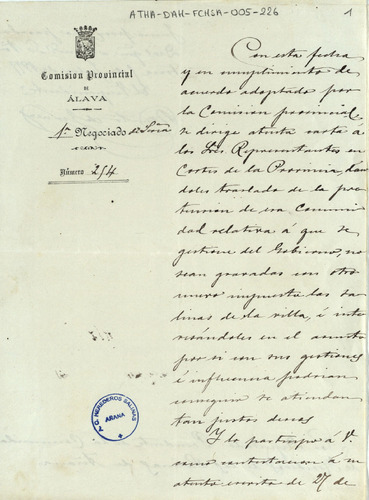 ATHA-DAH-FCHSA-005-226
1
Comision Provincial
DE
ÁLAVA
1er Negociado de Sría
Número 254
Con esta fecha
y en cumplimiento de
acuerdo adoptado por
la Comisión provincial,
se dirige atenta carta a
los Sres. Representantes en
Cortes de la Provincia, dan
doles traslado de la pre
tension de esa Comuni
dad relativa á que se
gestione del Gobierno, no
sean gravadas con otro
nuevo impuesto las sa
linas de la villa, é inte
resándoles en el asunto
por si con sus gestiones
é influencia podrian
conseguir se atiendan
tan justos deseos
Y lo participo á V.
como contestacion á su
atento escrito de 27 de
C. HEREDEROS SALINAS
ARANA